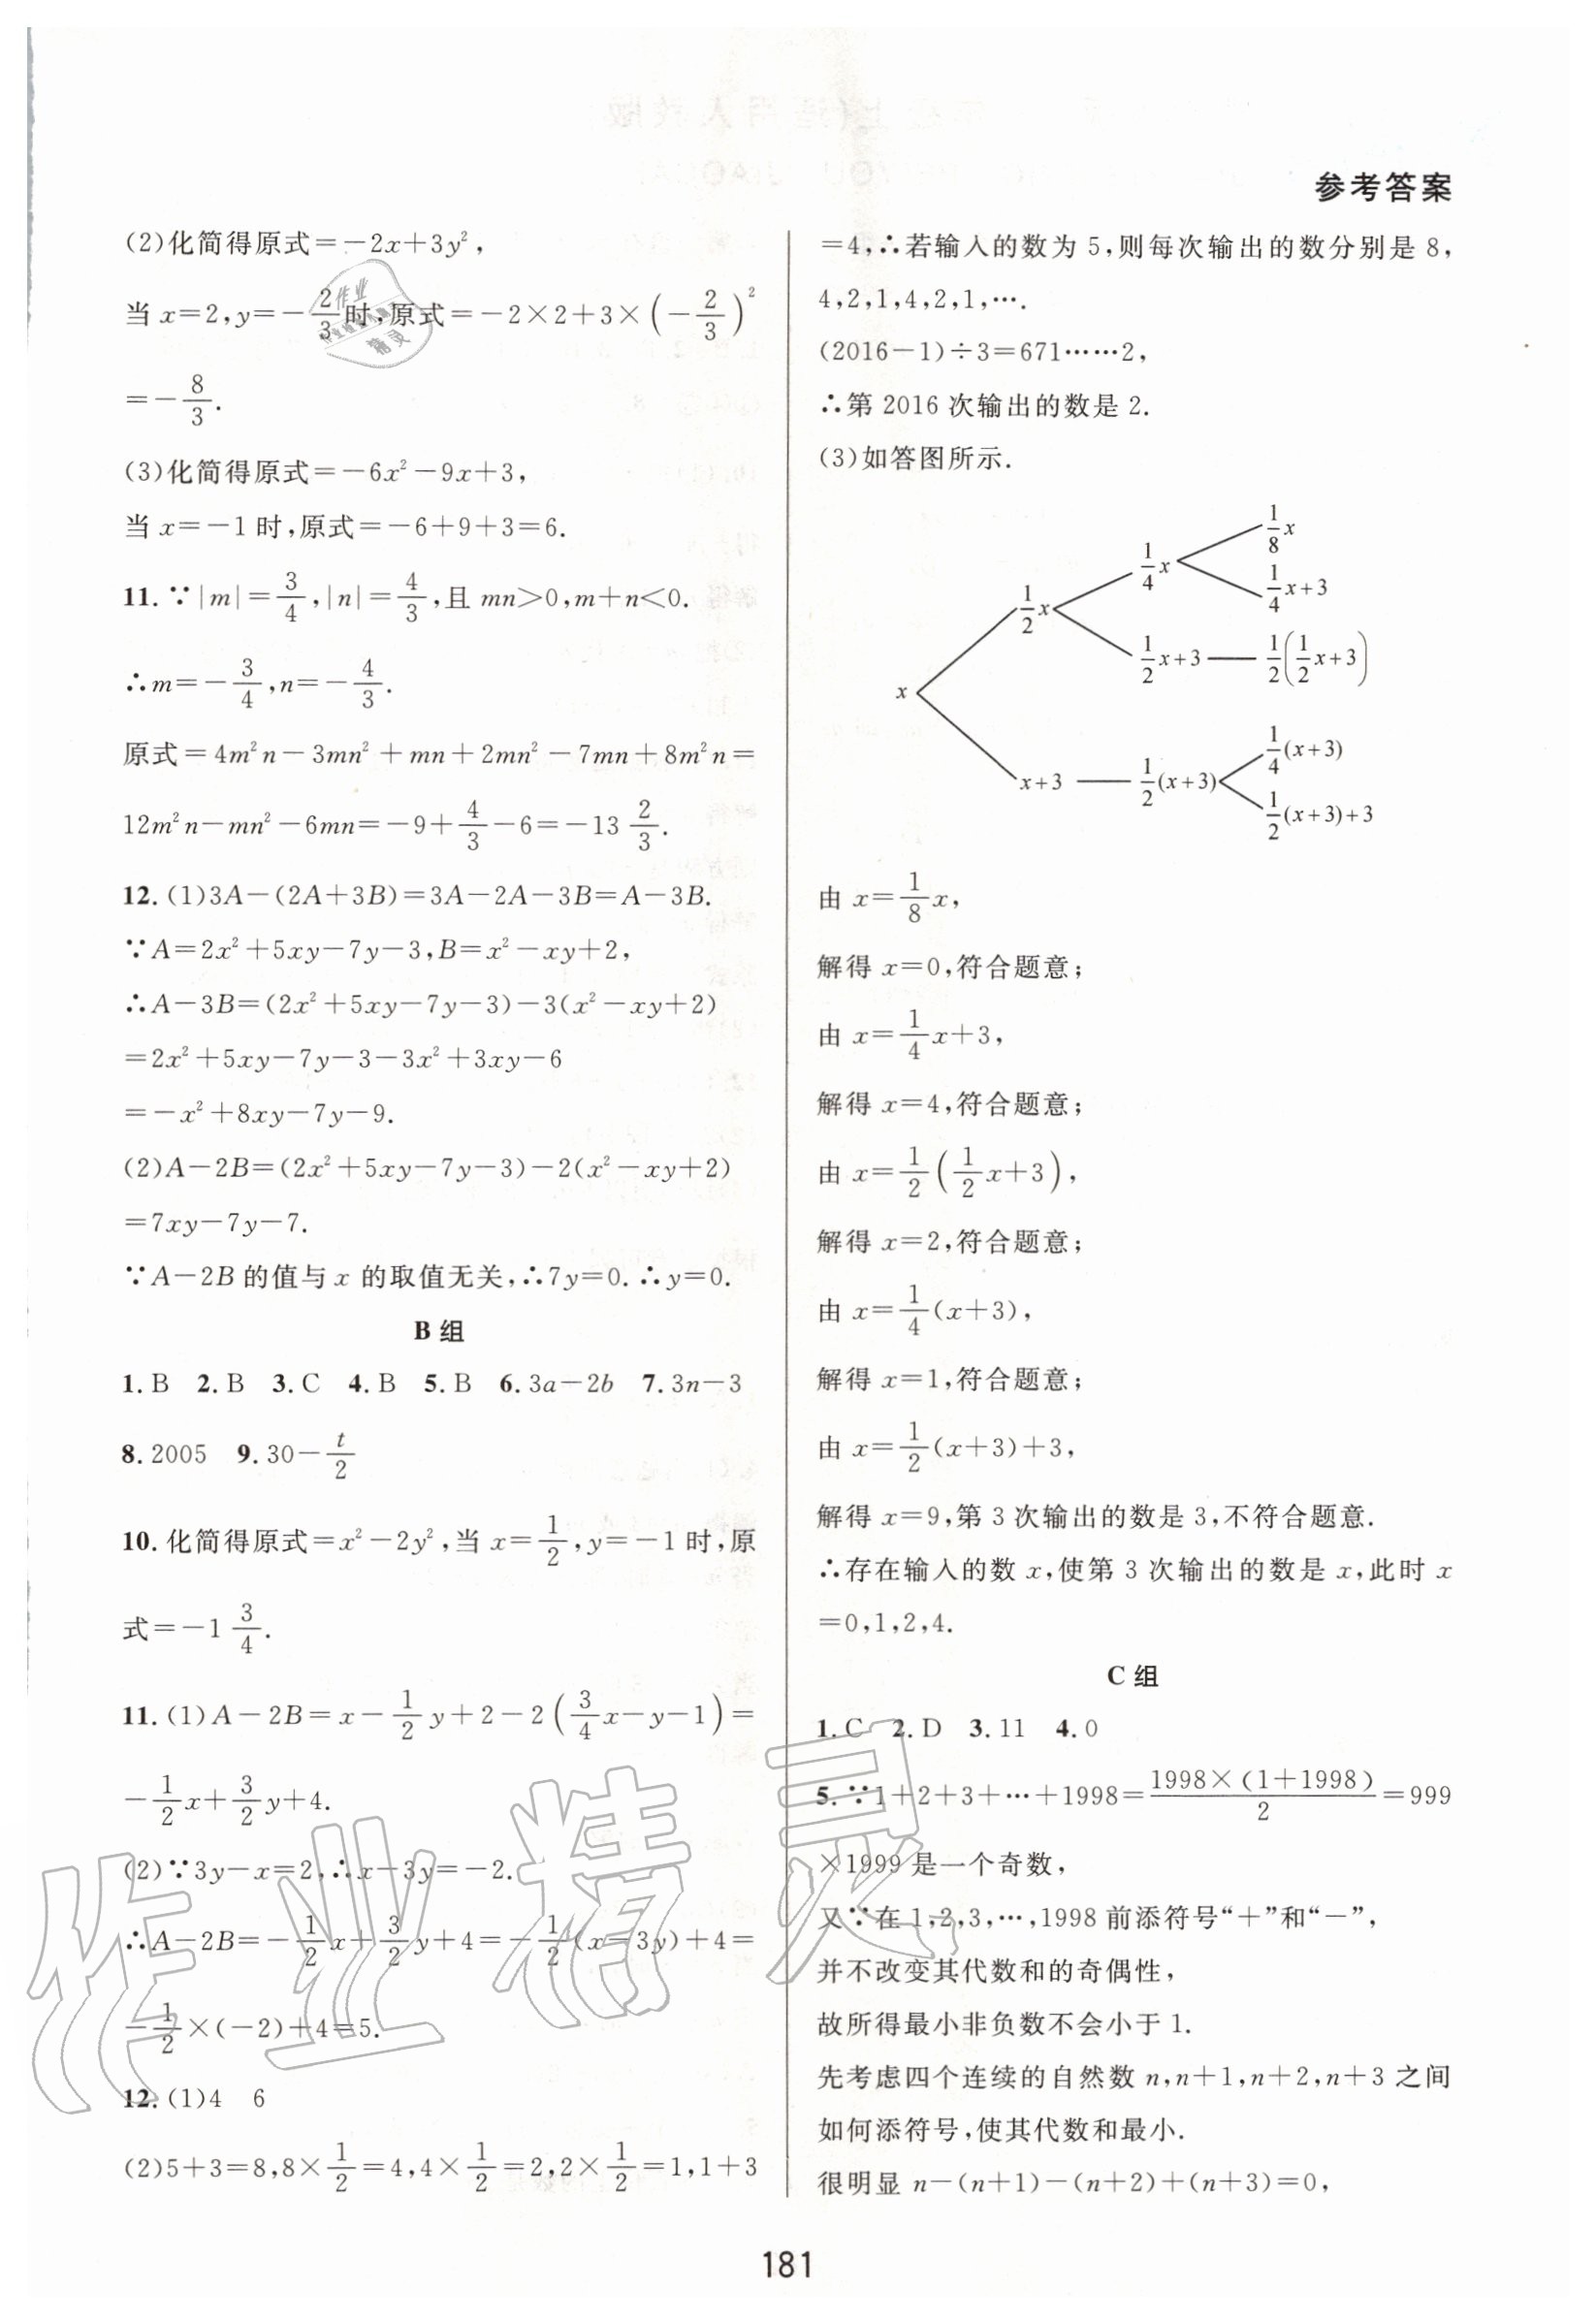 参考答案
(2)化简得原式=-2x+3y²,
当 x=2,y=-2/3时,原式=-2×2+3×(-2/3)²
=-8/3.
(3)化简得原式=-6x²-9x+3,
当 x=-1 时,原式=-6+9+3=6.
11.∵|m|=3/4,|n|=4/3,且 mn>0,m+n<0.
∴m=-3/4,n=-4/3.
原式=4m²n-3mn²+mn+2mn²-7mn+8m²n=
12m²n-mn²-6mn=-9+4/3-6=-13 2/3.
12.(1)3A-(2A+3B)=3A-2A-3B=A-3B.
∵A=2x²+5xy-7y-3,B=x²-xy+2,
∴A-3B=(2x²+5xy-7y-3)-3(x²-xy+2)
=2x²+5xy-7y-3-3x²+3xy-6
=-x²+8xy-7y-9.
(2)A-2B=(2x²+5xy-7y-3)-2(x²-xy+2)
=7xy-7y-7.
∵A-2B 的值与 x 的取值无关,∴7y=0.∴y=0.
B 组
1.B 2.B 3.C 4.B 5.B 6.3a-2b 7.3n-3
8.2005 9.30-t/2
10.化简得原式=x²-2y²,当 x=1/2,y=-1 时,原
式=-1 3/4.
11.(1)A-2B=x-1/2y+2-2(3/4x-y-1)=
-1/2x+3/2y+4.
(2)∵3y-x=2,∴x-3y=-2.
∴A-2B=-1/2x+3/2y+4=-1/2(x-3y)+4=
-1/2×(-2)+4=5.
12.(1)4 6
(2)5+3=8,8×1/2=4,4×1/2=2,2×1/2=1,1+3
=4,∴若输入的数为 5,则每次输出的数分别是 8,
4,2,1,4,2,1,….
(2016-1)÷3=671……2,
∴第 2016 次输出的数是 2.
(3)如答图所示.
1/8x
1/4x
1/4x+3
1/2x
1/2x+3
1/2(1/2x+3)
x
1/4(x+3)
x+3
1/2(x+3)
1/2(x+3)+3
由 x=1/8x,
解得 x=0,符合题意;
由 x=1/4x+3,
解得 x=4,符合题意;
由 x=1/2(1/2x+3),
解得 x=2,符合题意;
由 x=1/4(x+3),
解得 x=1,符合题意;
由 x=1/2(x+3)+3,
解得 x=9,第 3 次输出的数是 3,不符合题意.
∴存在输入的数 x,使第 3 次输出的数是 x,此时 x
=0,1,2,4.
C 组
1.C 2.D 3.11 4.0
5.∵1+2+3+…+1998=1998×(1+1998)/2=999
×1999 是一个奇数,
又∵在 1,2,3,…,1998 前添符号“+”和“-”,
并不改变其代数和的奇偶性,
故所得最小非负数不会小于 1.
先考虑四个连续的自然数 n,n+1,n+2,n+3 之间
如何添符号,使其代数和最小.
很明显 n-(n+1)-(n+2)+(n+3)=0,
181
作业精灵